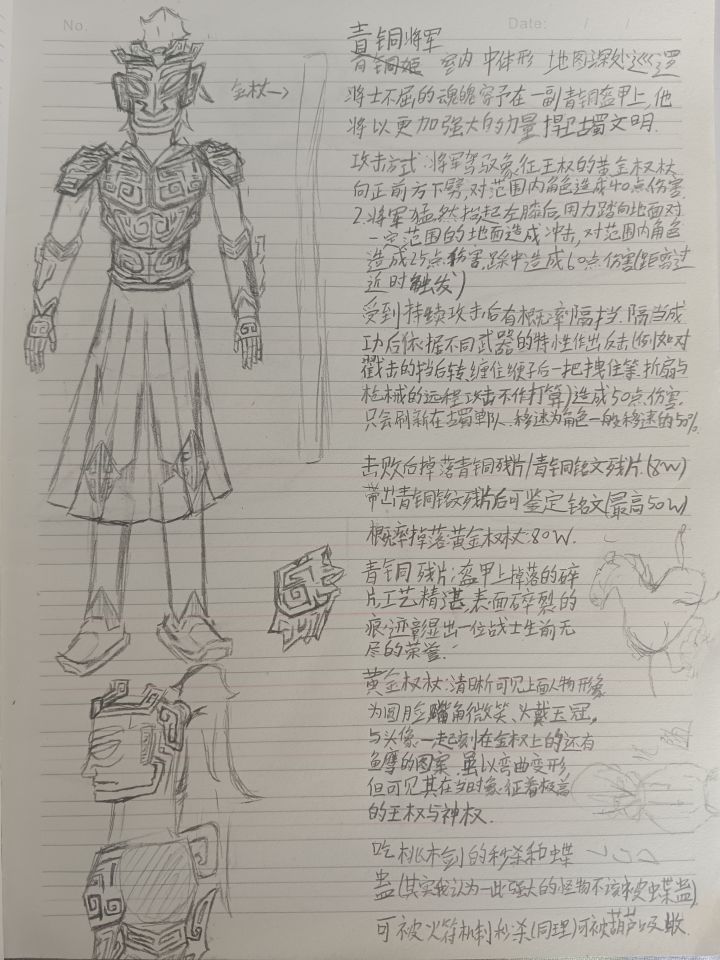 No.
Date: / /
青铜将军
青铜姬 室内 中体形 地图深处巡逻
金杖→
将士不屈的魂魄寄予在一副青铜盔甲上,他
将以更加强大的力量捍卫古蜀文明.
攻击方式:将军驾驭象征王权的黄金权杖
向正前方下劈,对范围内角色造成40点伤害
2.将军猛然抬起左膝后,用力踏向地面对
一定范围的地面造成冲击,对范围内角色
造成25点伤害,踩中造成60点伤害(距离过
近时触发)
受到持续攻击后有概率隔挡.隔当成
功后依据不同武器的特性作出反击(例如对
戳击的挡后转,缠住鞭子后一把拽住等.折扇与
枪械的远程攻击不作打算)造成50点伤害.
只会刷新在古蜀郫队.移速为角色一般移速的50%.
击败后掉落青铜残片/青铜铭文残片.(8W)
带出青铜铭文残片后可鉴定铭文(最高50W)
概率掉落黄金权杖:80W.
青铜残片:盔甲上掉落的碎
片工艺精湛,表面碎裂的
痕迹彰显出一位战士生前无
尽的荣誉.
黄金权杖:清晰可见上面人物形象
为圆脸嘴角微笑、头戴王冠,
与头像一起刻在金杖上的还有
鱼鹰的图案.虽以弯曲变形,
但可见其在当时象征着极高
的王权与神权.
吃桃木剑的秒杀和蝶
蛊(其实我认为一些强大的怪物不该被蝶蛊)
可被火符机制秒杀(同理)可被葫芦吸收.